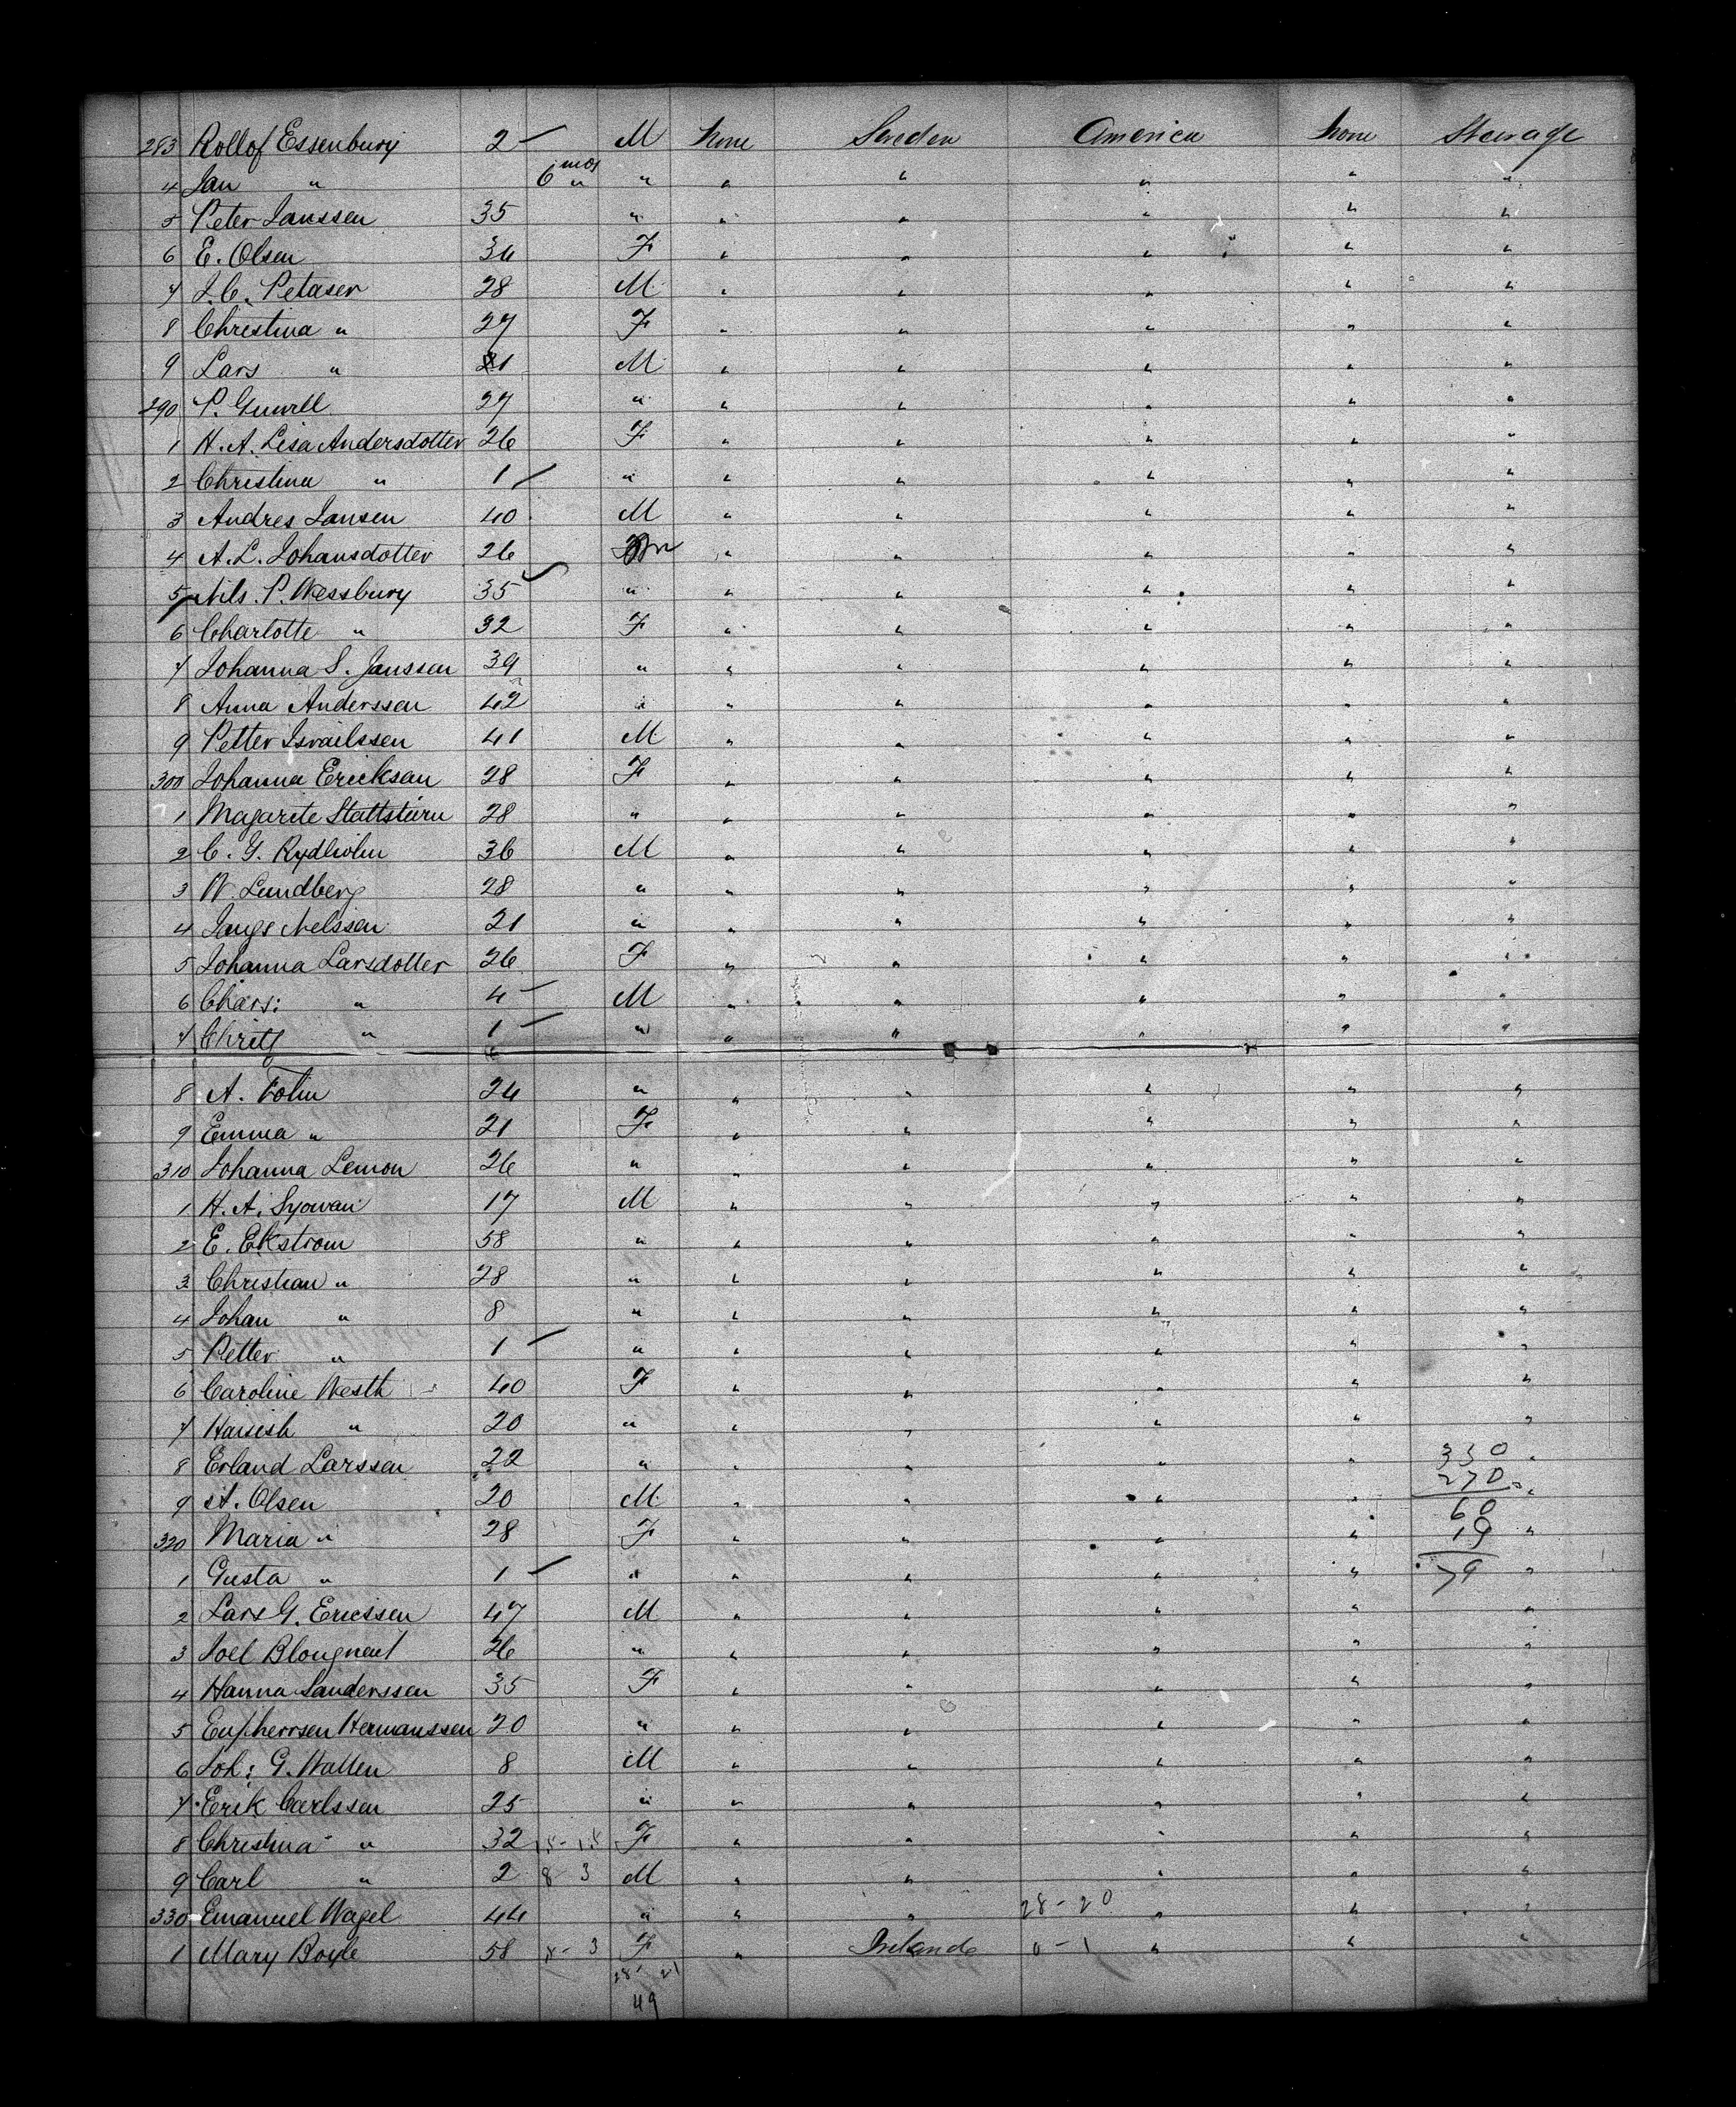 283 Rollof Essenbury 2 — M None Sweden America None Steerage
4 Jan " 6 mos " " " " " " "
5 Peter Janssen 35 " " " " " "
6 E. Olsen 34 F " " " " "
7 J. C. Petaser 28 M " " " " "
8 Christina " 27 F " " " " "
9 Lars " 21 M " " " " "
290 P. 27 " " " " " "
1 H. A. Lisa Andersdotter 26 F " " " " "
2 Christina " 1 — " " " " " "
3 Andres Jansen 40 M " " " " "
4 A. L. Johansdotter 26 " " " " "
5 Nils. P. Wessbury 35 " " " " " "
6 Charlotte " 32 F " " " " "
7 Johanna S. Janssen 39 " " " " " "
8 Anna Anderssen 42 " " " " " "
9 Petter Israilssen 41 M " " " " "
300 Johanna Ericksen 28 F " " " " "
1 Magarete 28 " " " " " "
2 C. G. Rydholm 36 M " " " " "
3 W. Lundberg 28 " " " " " "
4 Nelssen 21 " " " " " "
5 Johanna Larsdotter 26 F " " " " "
6 Chars: " 4 — M " " " " "
7 " 1 — " " " " " "
8 A. 24 " " " " " "
9 Emma " 21 F " " " " "
310 Johanna Lemon 26 " " " " " "
1 H. A. 17 M " " " " "
2 E. Ekstrom 58 " " " " " "
3 Christian " 28 " " " " " "
4 Johan " 8 " " " " " "
5 Petter " 1 — " " " " " "
6 Caroline Westh 40 F " " " " "
7 " 20 " " " " " "
8 Erland Larssen 22 " " " " " " 330
9 A. Olsen 20 M " " " " " 270
60
320 Maria " 28 F " " " " " 19
1 Gusta " 1 — " " " " " " 79
2 Lars G. Ericssen 47 M " " " " "
3 Joel 26 " " " " " "
4 Hanna Sanderssen 35 F " " " " "
5 Hermanssen 20 " " " " " "
6 Joh: G. Wallen 8 M " " " " "
7 Erik Carlssen 25 " " " " " "
8 Christina " 32 F " " " " "
9 Carl " 2 8 3 M " " " " "
330 Emanuel Wagel 44 " " " 28 - 20 " " "
1 Mary Boyle 58 F " Irelande 0 - 1 " " "
28 - 21
49